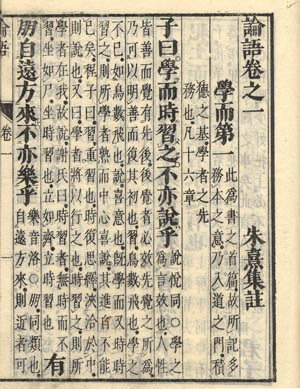 論語卷之一
朱熹集註
學而第一
此為書之首篇故所記多
務本之意乃入道之門積
德之基學者之先
務也凡十六章
子曰學而時習之不亦說乎
說悅同○學之
為言效也人性
皆善而覺有先後後覺者必效先覺之所為
乃可以明善而復其初也習鳥數飛也學之
不已如鳥數飛也說喜意也旣學而又時時
習之則所學者熟而中心喜說其進自不能
已矣程子曰習重習也時復思繹浹洽於中
則說也又曰學者將以行之也時習之則所
學者在我故說謝氏曰時習者無時而不
習坐如尸坐時習也立如齊立時習也
有
朋自遠方來不亦樂乎
樂音洛○朋同類也
自遠方來則近者可
論語
卷一